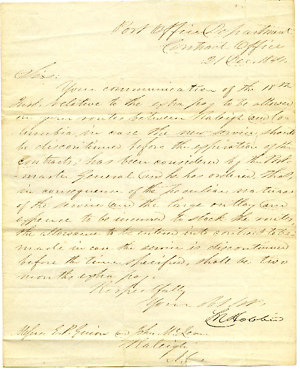 Post Office Department
Contract Office
21 Dec.
Sirs:
Your communication of the 18th
Inst. relative to the extra pay to be allowed
on your routes between Raleigh and Co-
lumbia, in case the new service should
be discontinued before the expiration of the
Contracts, has been considered by the Post-
master General and he has ordered that,
in consequence of the peculiar nature
of the service and the large outlay and
expense to be incurred to stock the routes,
the allowance to be entered into contract to be
made in case the service is discontinued
before the time specified, shall be two
months extra pay.
Respectfully
Your
Messrs E. P. Guion and John
Raleigh
N. C.